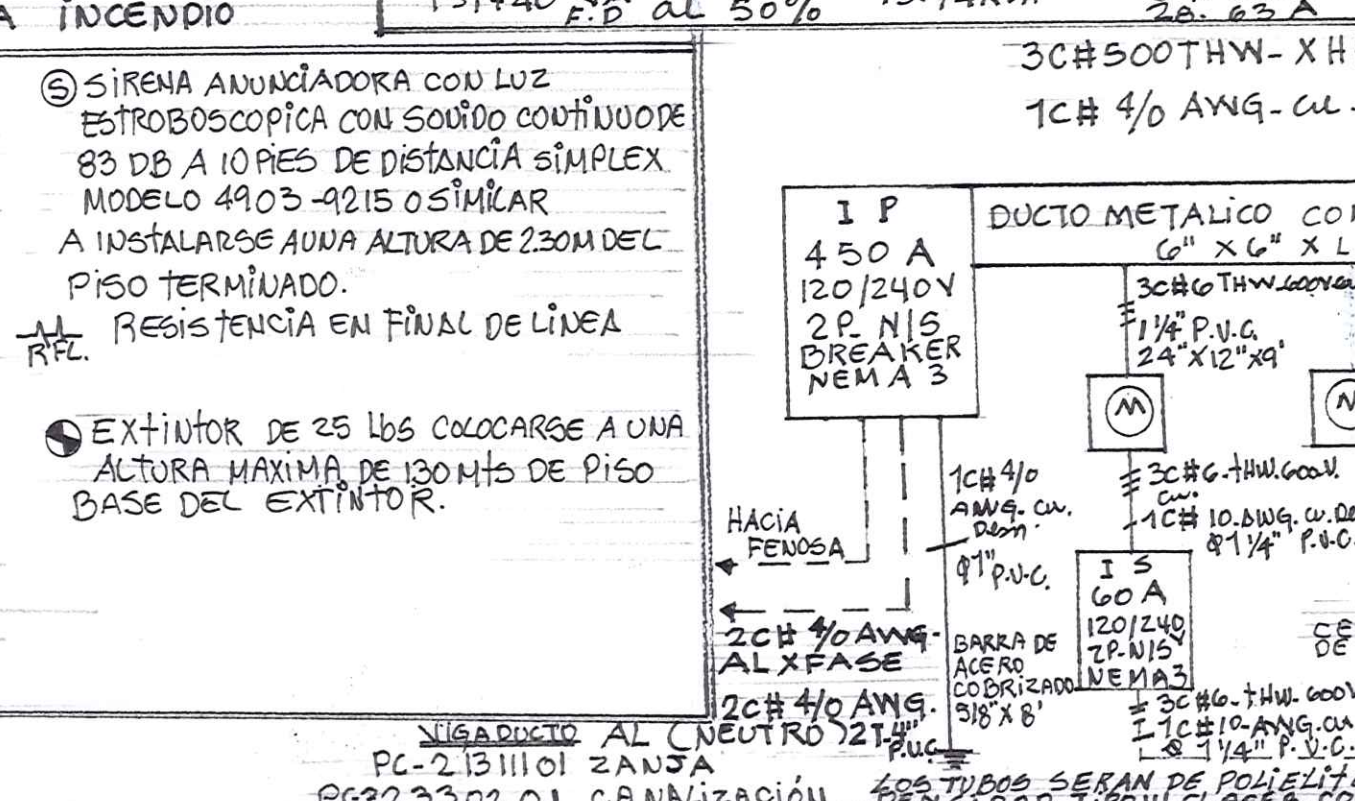 A INCENDIO
F.D al 50%
28.63 A
Ⓢ SIRENA ANUNCIADORA CON LUZ
ESTROBOSCOPICA CON SONIDO CONTINUO DE
83 DB A 10 PIES DE DISTANCIA SIMPLEX
MODELO 4903-9215 O SIMILAR
A INSTALARSE A UNA ALTURA DE 2.30M DEL
PISO TERMINADO.
RFL. RESISTENCIA EN FINAL DE LINEA
EXTINTOR DE 25 Lbs COLOCARSE A UNA
ALTURA MAXIMA DE 130 Mts DE PISO
BASE DEL EXTINTOR.
3C#500THW-XH
1C# 4/0 AWG-CU.
I P
450 A
120/240V
2P_N|S
BREAKER
NEMA 3
DUCTO METALICO
6" X 6" X L
3C#6 THW
1 1/4" P.V.C.
24"X12"X9'
M
3C#6-tHW.600V.
cu.
1C# 10.AWG.CU.
Φ1 1/4" P.V.C.
HACIA
FENOSA
1C# 4/0
AWG. CU.
Desn.
Φ1" P.V.C.
2C# 4/0 AWG-
AL X FASE
2C# 4/0 AWG.
AL (NEUTRO) 2T-4"
P.V.C
BARRA DE
ACERO
COBRIZADO
5/8" X 8'
I S
60 A
120/240V
2P-N|S
NEMA3
3C#6-tHW-600V
1C#10-AWG.CU
Φ 1 1/4" P.V.C.
VIGADUCTO
PC-21311101 ZANJA
CANALIZACIÓN
LOS TUBOS SERAN DE